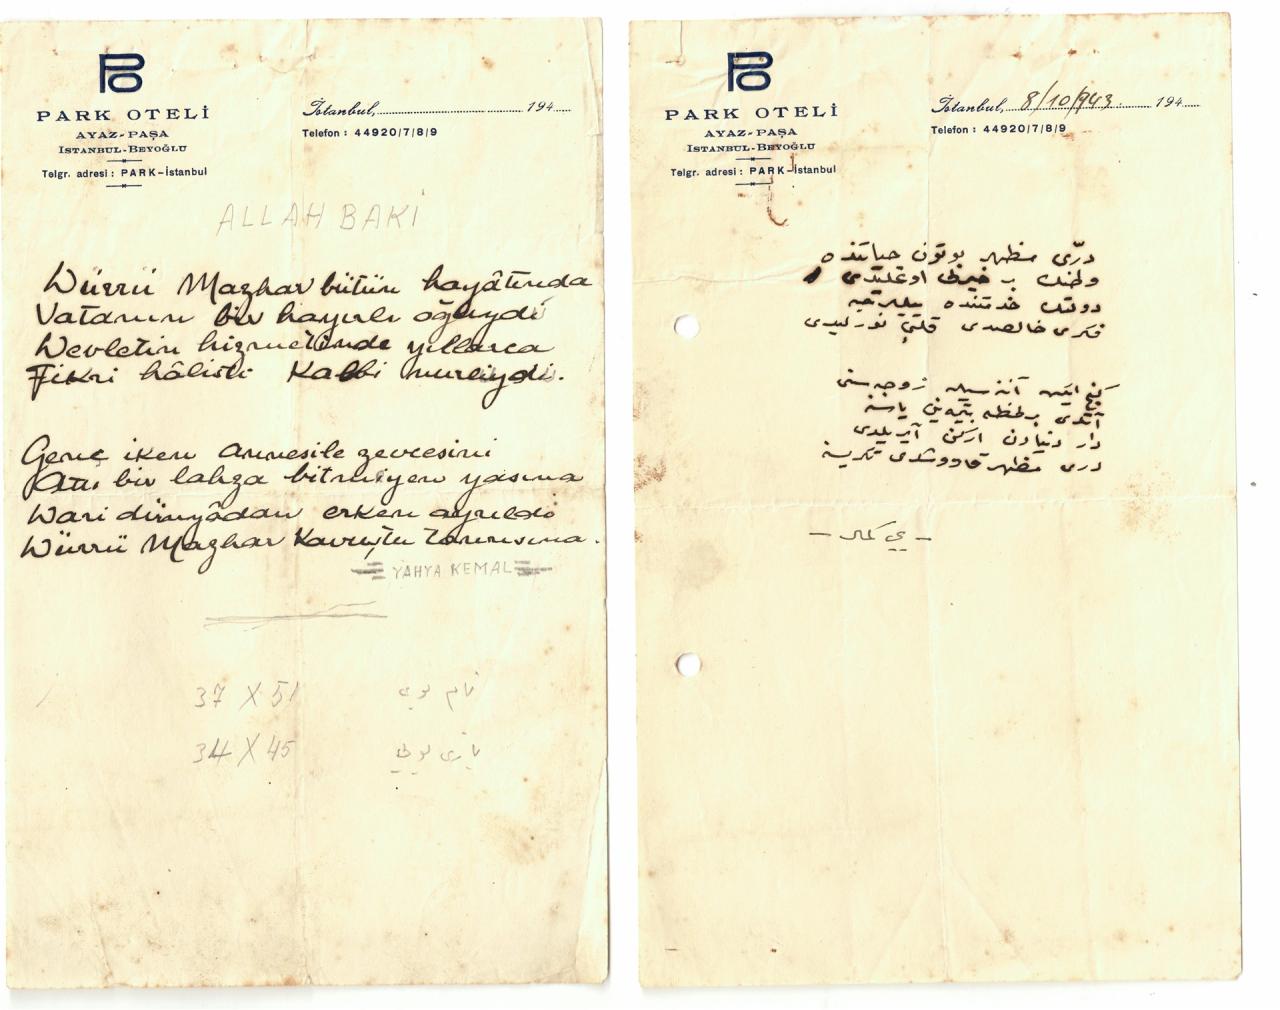 PO
PARK OTELİ
AYAZ-PAŞA
ISTANBUL-BEYOĞLU
Telgr. adresi : PARK-İstanbul
İstanbul, 194
Telefon : 44920/7/8/9
ALLAH BAKİ
Dürrü Mazhar bütün hayâtında
Vatanın bir hayırlı oğluydu
Devletin hizmetinde yıllarca
Fikri hâlisti Kalbi nurluydu.
Genç iken annesile zevcesini
Attı bir lahza bitmiyen yasına
Dari dünyâdan erken ayrıldı
Dürrü Mazhar Kavuştu Tanrısına.
YAHYA KEMAL
37 X 51 تام بوى
34 X 45 يازى بويى
PO
PARK OTELİ
AYAZ-PAŞA
ISTANBUL-BEYOĞLU
Telgr. adresi : PARK-İstanbul
İstanbul, 8/10/943 194
Telefon : 44920/7/8/9
درّى مظهر بوتون حياتنده
وطنك بر خيرلى اوغليدى
دولتك خدمتنده ييللرجه
فكرى خالصدى قلبى نورليدى
كنج ايكن آننه سيله زوجه سنى
آتدى بر لحظه بيتمه ين ياسنه
دار دنيادن اركن آيريلدى
درى مظهر قاووشدى تكريسنه